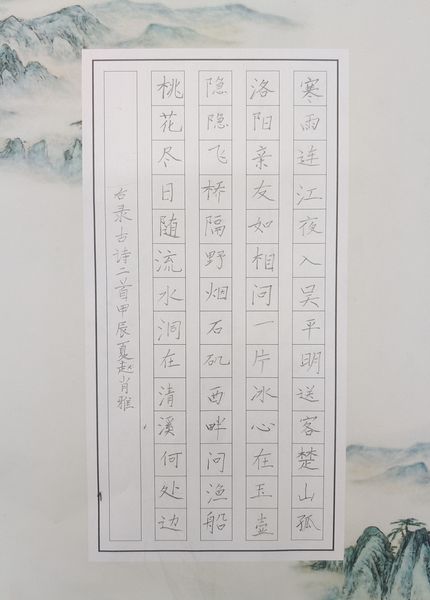 寒雨连江夜入吴平明送客楚山孤
洛阳亲友如相问一片冰心在玉壶
隐隐飞桥隔野烟石矶西畔问渔船
桃花尽日随流水洞在清溪何处边
右录古诗二首甲辰夏赵肖雅